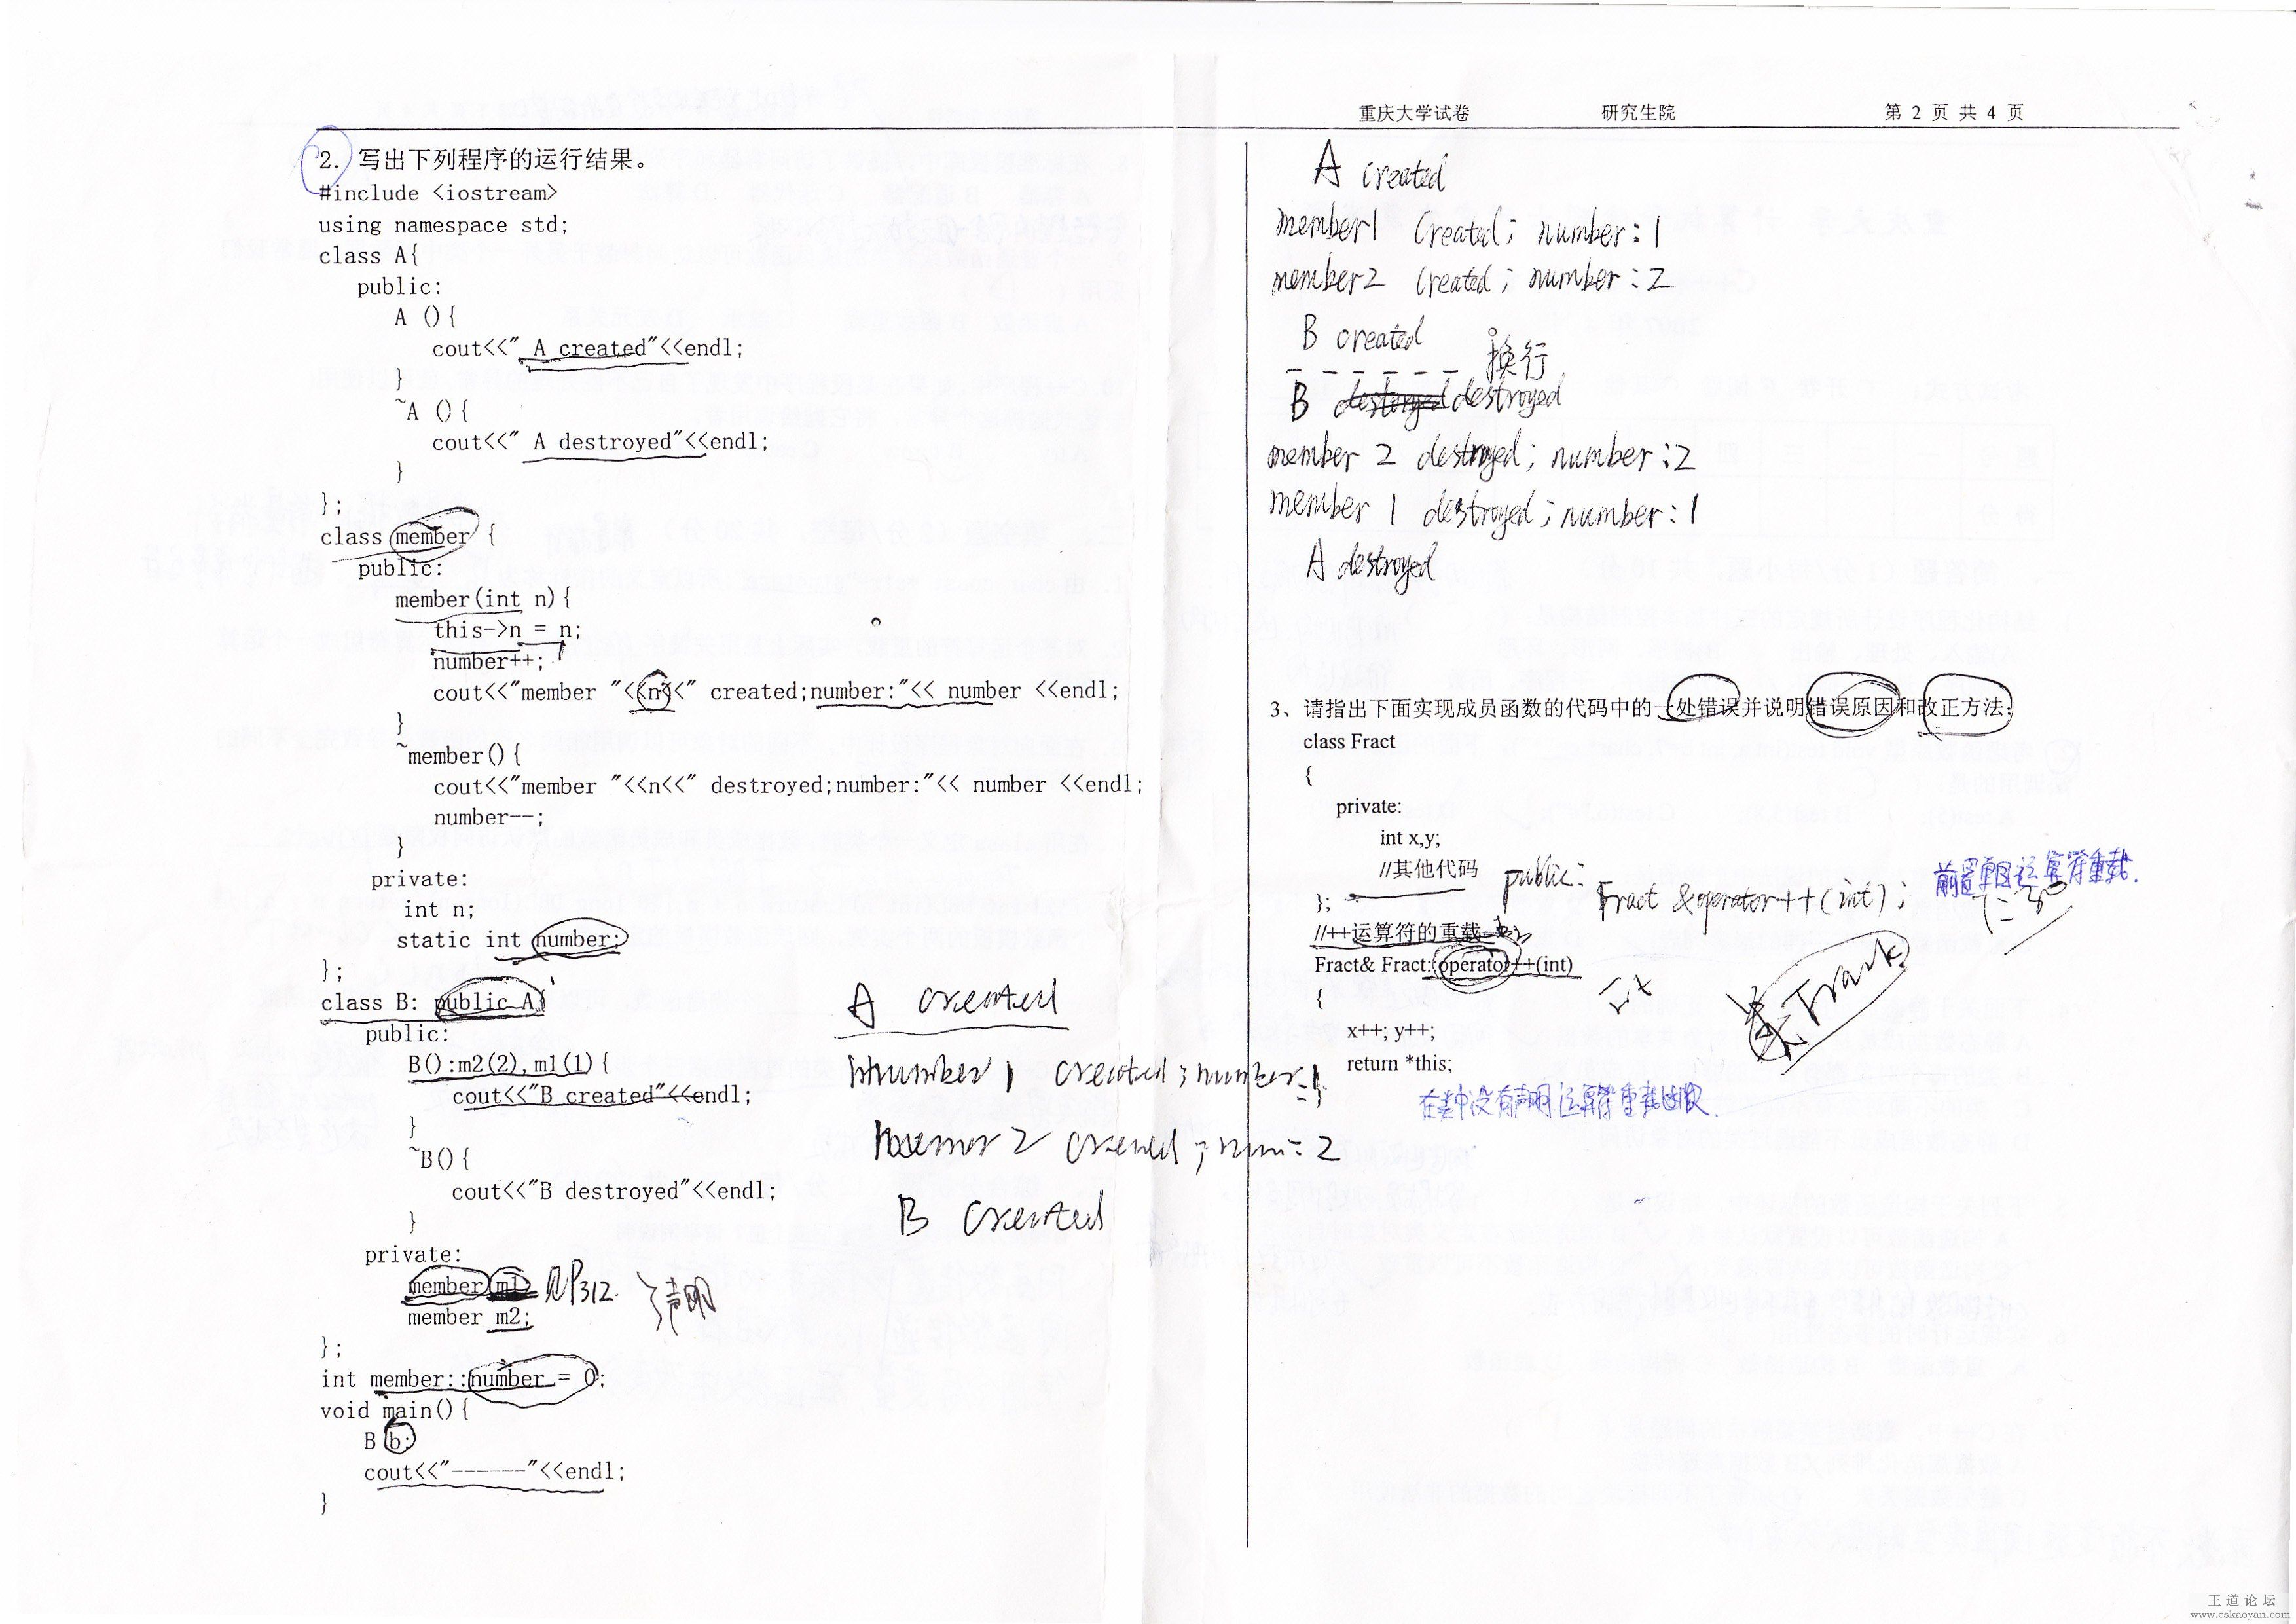 重庆大学试卷 研究生院 第 2 页 共 4 页
2. 写出下列程序的运行结果。
#include <iostream>
using namespace std;
class A{
public:
A (){
cout<<" A created"<<endl;
}
~A (){
cout<<" A destroyed"<<endl;
}
};
class member {
public:
member(int n){
this->n = n;
number++;
cout<<"member "<<n<<" created;number:"<< number <<endl;
}
~member(){
cout<<"member "<<n<<" destroyed;number:"<< number <<endl;
number--;
}
private:
int n;
static int number;
};
class B: public A{
public:
B():m2(2),m1(1){
cout<<"B created"<<endl;
}
~B(){
cout<<"B destroyed"<<endl;
}
private:
member m1; 见P312. 声明
member m2;
};
int member::number = 0;
void main(){
B b;
cout<<"------"<<endl;
}
A created
1 created ; number=1
2 created ; num=2
B created
A created
member1 created; number:1
member2 created; number:2
B created
------ 换行
B destroyed
member 2 destroyed; number:2
member 1 destroyed; number:1
A destroyed
3、请指出下面实现成员函数的代码中的一处错误并说明错误原因和改正方法:
class Fract
{
private:
int x,y;
//其他代码
public:
Fract &operator++(int);
前置单目运算符重载.
};
//++运算符的重载
Fract& Fract::operator++(int)
{
x++; y++;
return *this;
}
在类中没有声明运算符重载函数.
王道论坛
www.cskaoyan.com